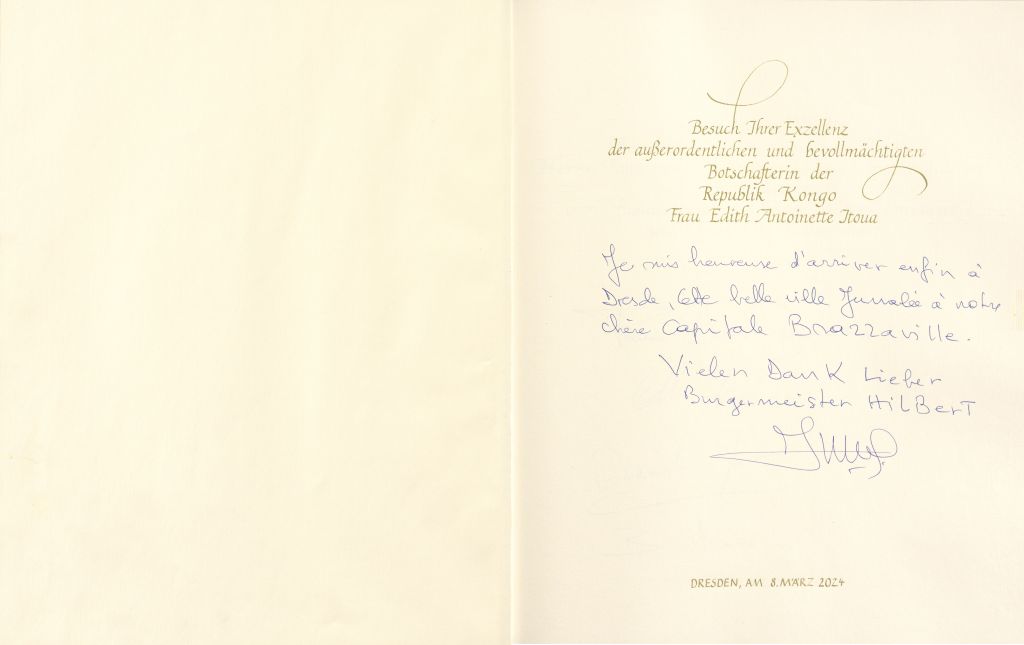 Besuch Ihrer Exzellenz
der außerordentlichen und bevollmächtigten
Botschafterin der
Republik Kongo
Frau Edith Antoinette Itoua
Je suis heureuse d'arriver enfin à
Dresde, cette belle ville Jumelée à notre
chère Capitale Brazzaville.
Vielen Dank Lieber
Burgermeister HilBerT
DRESDEN, AM 8. MÄRZ 2024